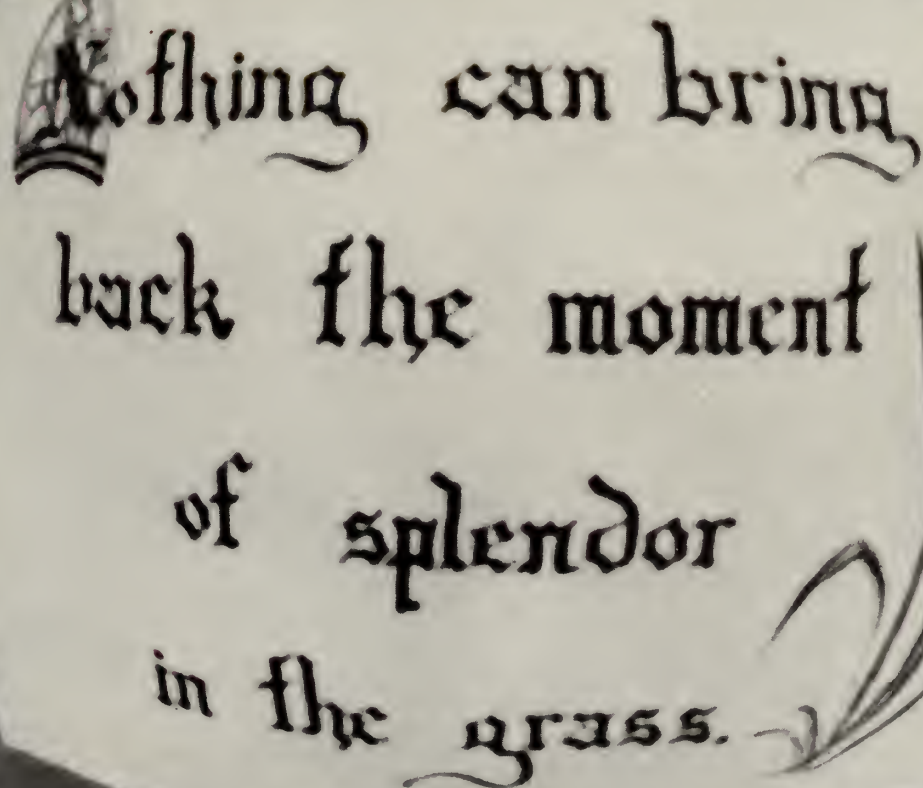 Nothing can bring
back the moment
of splendor
in the grass.